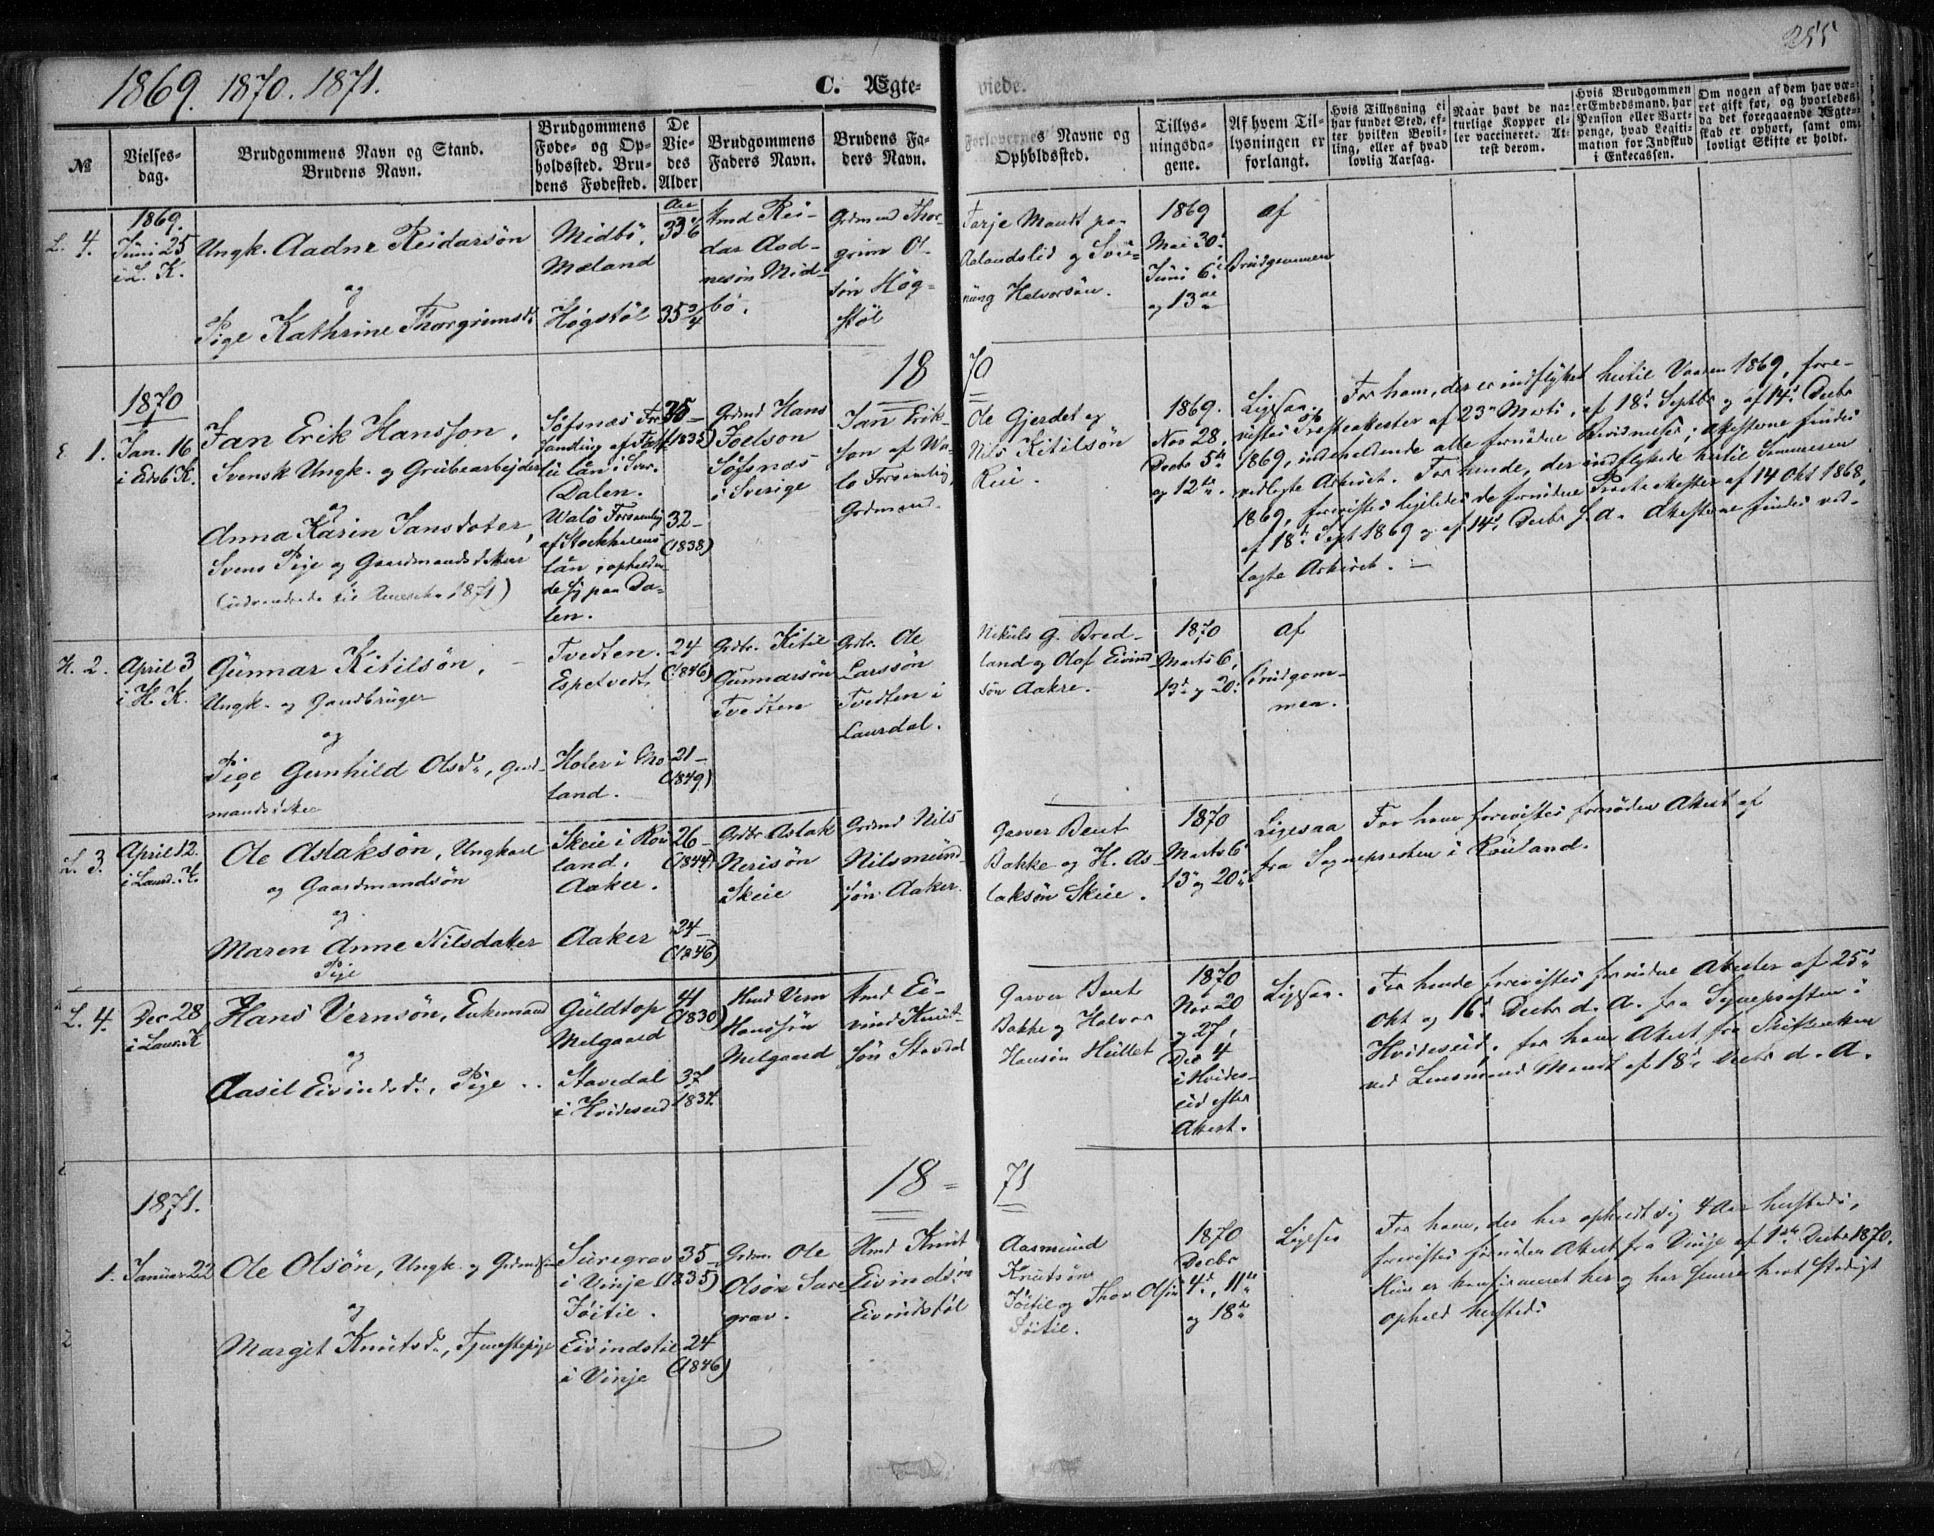 1869. 1870. 1871.
C. Ægte-
viede.
255
№
Vielses-
dag.
Brudgommens Navn og Stand.
Brudens Navn.
Brudgommens
Føde- og Op-
holdssted. Bru-
dens Fødested.
De
Vie-
des
Alder
Brudgommens
Faders Navn.
Brudens Fa-
ders Navn.
Forlovernes Navne og
Opholdssted.
Tillys-
ningsda-
gene.
Af hvem Til-
lysningen er
forlangt.
Hvis Tillysning ei
har fundet Sted, ef-
ter hvilken Bevil-
ling, eller af hvad
lovlig Aarsag.
Naar havt de na-
turlige Kopper el-
ler vaccineret. At-
test derom.
Hvis Brudgommen
er Embedsmand, har
Pension eller Vart-
penge, hvad Legiti-
mation for Indskud
i Enkecassen.
Om nogen af dem har væ-
ret gift før, og hvorledes
da det foregaaende Ægte-
skab er ophørt, samt om
lovligt Skifte er holdt.
L. 4.
1869.
Juni 25
i L. K.
Ungk. Aadne Reidarsön
og
Pige Kathrine Thorgrimsd.
Midbö,
Mæland
Högstöl
Aar
33 1/6
35 3/4
Hmd Rei-
dar Aad-
nesön Mid-
bö.
Grdmnd Thor-
grim Ol-
sön Hög-
stöl
Tarje Mandt paa
Aalandslid og Svei-
nung Halvorsön.
1869
Mai 30.
Juni 6.
og 13de
af
Brudgommen
1870
1870
E. 1.
Jan. 16
i Eidsb. K.
Jan Erik Hansson,
Svensk Ungk. og Grubearbejder
og
Anna Karin Jansdoter,
Svens Pige og Gaardmandsdatter
(udvandrede til Amerika 1871)
Söfsnäs For-
samling af Fal-
lü län i Sver.
Dalen.
Walö Forsamling
af Stockholms
län, opholden-
de sig paa Da-
len.
35
(1835)
32
(1838)
Grdmd Hans
Joelson
Söfsnäs
i Sverige
Jan Erik-
son af Wa-
lö Forsamling,
Grdmand.
Ole Gjerdet og
Nils Kitilsön
Rui.
1869.
Nov 28,
Decbr 5te
og 12te.
Ligesaa.
For ham, der er indflyttet hertil Vaaren 1869, fore-
vistes Præsteattester af 23de Marts, af 18de Septbr og af 14de Decbr
1869, indeholdende alle fornødne Bevidnelser; Attesterne findes
vedlagte Arkivet. For hende, der indflyttede hertil Sommeren
1869, forevistes ligeledes de fornødne Præsteattester af 14 Okt 1868,
af 18de Sept 1869 og af 14de Decbr s. A. Attesterne findes ved-
lagte Arkivet.
H. 2.
April 3
i H. K.
Gunnar Kitilsön,
Ungk. og Gaardbruger
og
Pige Gunhild Olsdr, Gaard-
mandsdatter
Tvedten.
Espetvedt
Holen i Mo
land.
24
(1846)
21
(1849)
Grdbr. Kitil
Gunnarsön
Tvedten
Grdbr. Ole
Larssön
Tvedten i
Laurdal.
Nikuls G. Bred-
land og Olaf Eivind-
sön Aakre.
1870
Marts 6,
13de og 20.
af
Brudgom-
men.
L. 3.
April 12.
i Laurd. K.
Ole Aslaksön, Ungkarl
og Gaardmandsön
og
Maren Anne Nilsdatter
Pige
Skeie i Rou-
land.
Aaker.
Aaker
26
(1844)
24
(1846)
Grdbr Aslak
Nerisön
Skeie
Grdmd Nils
Nilsmund-
sön Aaker.
Garver Bent
Bakke og H. As-
laksön Skeie.
1870
Marts 6
13de og 20de
Ligesaa
For ham forevistes fornøden Attest af
fra Sognepresten i Rauland.
L. 4.
Dec 28
i Laur. K
Hans Vernsön, Enkemand
og
Aasil Eivindsdr, Pige
Guldtop
Melgaard
Stavedal
i Hvideseid
41
(1830)
37
1834.
Hmd Vern
Hanssön
Melgaard
Hmd Ei-
vind Knut-
sön Stavdal
Garver Bent
Bakke og Halvor
Hansön Hullet
1870
Nov 20
og 27,
Dec 4
i Hvides-
eid efter
Attest.
Ligesaa.
For hende forevistes fornødne Attester af 25de
Okt og 16de Decbr d. A. fra Sognepresten i
Hvideseid, for ham Attest fra Skifteretten
ved Lensmand Mandt af 18de Decbr d. A.
1871.
1871
1.
Januar 22
Ole Olsön, Ungk. og Grdmdsön
og
Margit Knutsdr, Tjenestepige
Suregrav
i Vinje
Föitil.
Eivindstöl
i Vinje
35
(1835)
24
(1846)
Grdm. Ole
Olsön Sure
grav.
Hmd Knut
Eivindsön
Eivindstöl
Aasmund
Knutsön
Föitil og Thor Olsön
Föitil.
1870
Decbr
4de, 11te
og 18de
Ligesaa
For ham, der har opholdt sig 4 Aar hersteds,
forevistes fornøden Attest fra Vinje af 1ste Decbr 1870.
Hun er konfirmeret her og har senere havt stadigt
ophold hersteds